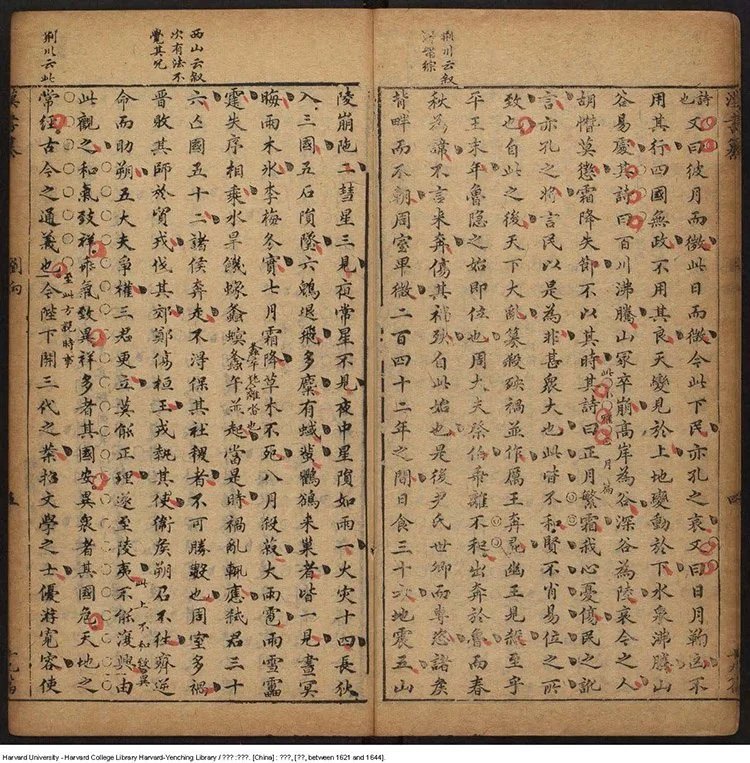 荊川云叙
詩也又曰彼月而微此日而微今此下民亦孔之哀又曰日月鞠凶不
用其行四國無政不用其良天變見於上地變動於下水泉沸騰山
谷易處其詩曰百川沸騰山冢卒崩高岸為谷深谷為陵哀今之人
胡憯莫懲霜降失節不以其時其詩曰正月繁霜我心憂傷民之訛
言亦孔之將言民以是為非甚眾大也此皆不和賢不肖易位之所
致也自此之後天下大亂篡殺殃禍並作厲王奔彘幽王見殺至乎
平王末年魯隱之始即位也周大夫祭伯乖離不和出奔於魯而春
秋為諱不言來奔傷其禍殃自此始也是後尹氏世卿而專恣諸侯
背畔而不朝周室卑微二百四十二年之間日食三十六地震五山
西山云叙
次有法不
覺其冗
荊川云此
陵崩阤二彗星三見夜常星不見夜中星隕如雨一火災十四長狄
入三國五石隕墜六鶂退飛多麋有蜮蜚鸜鵒來巢者皆一見晝冥
晦雨木氷李梅冬實七月霜降草木不死八月殺菽大雨雹雨雪靁
霆失序相乘水旱饑蝝螽螟螽午並起當是時禍亂輒應弒君三十
六亡國五十二諸侯奔走不得保其社稷者不可勝數也周室多禍
晉敗其師於貿戎伐其郊鄭傷桓王戎執其使衛侯朔召不往齊逆
命而助朔五大夫爭權三君更立莫能正理遂至陵夷不能復興由
此上不和致異
此觀之和氣致祥乖氣致異祥多者其國安異眾者其國危天地之
常經古今之通義也至此方説時事今陛下開三代之業招文學之士優游寬容使
劉向
Harvard University - Harvard College Library Harvard-Yenching Library / ??? :???. [China] : ???, [??, between 1621 and 1644].